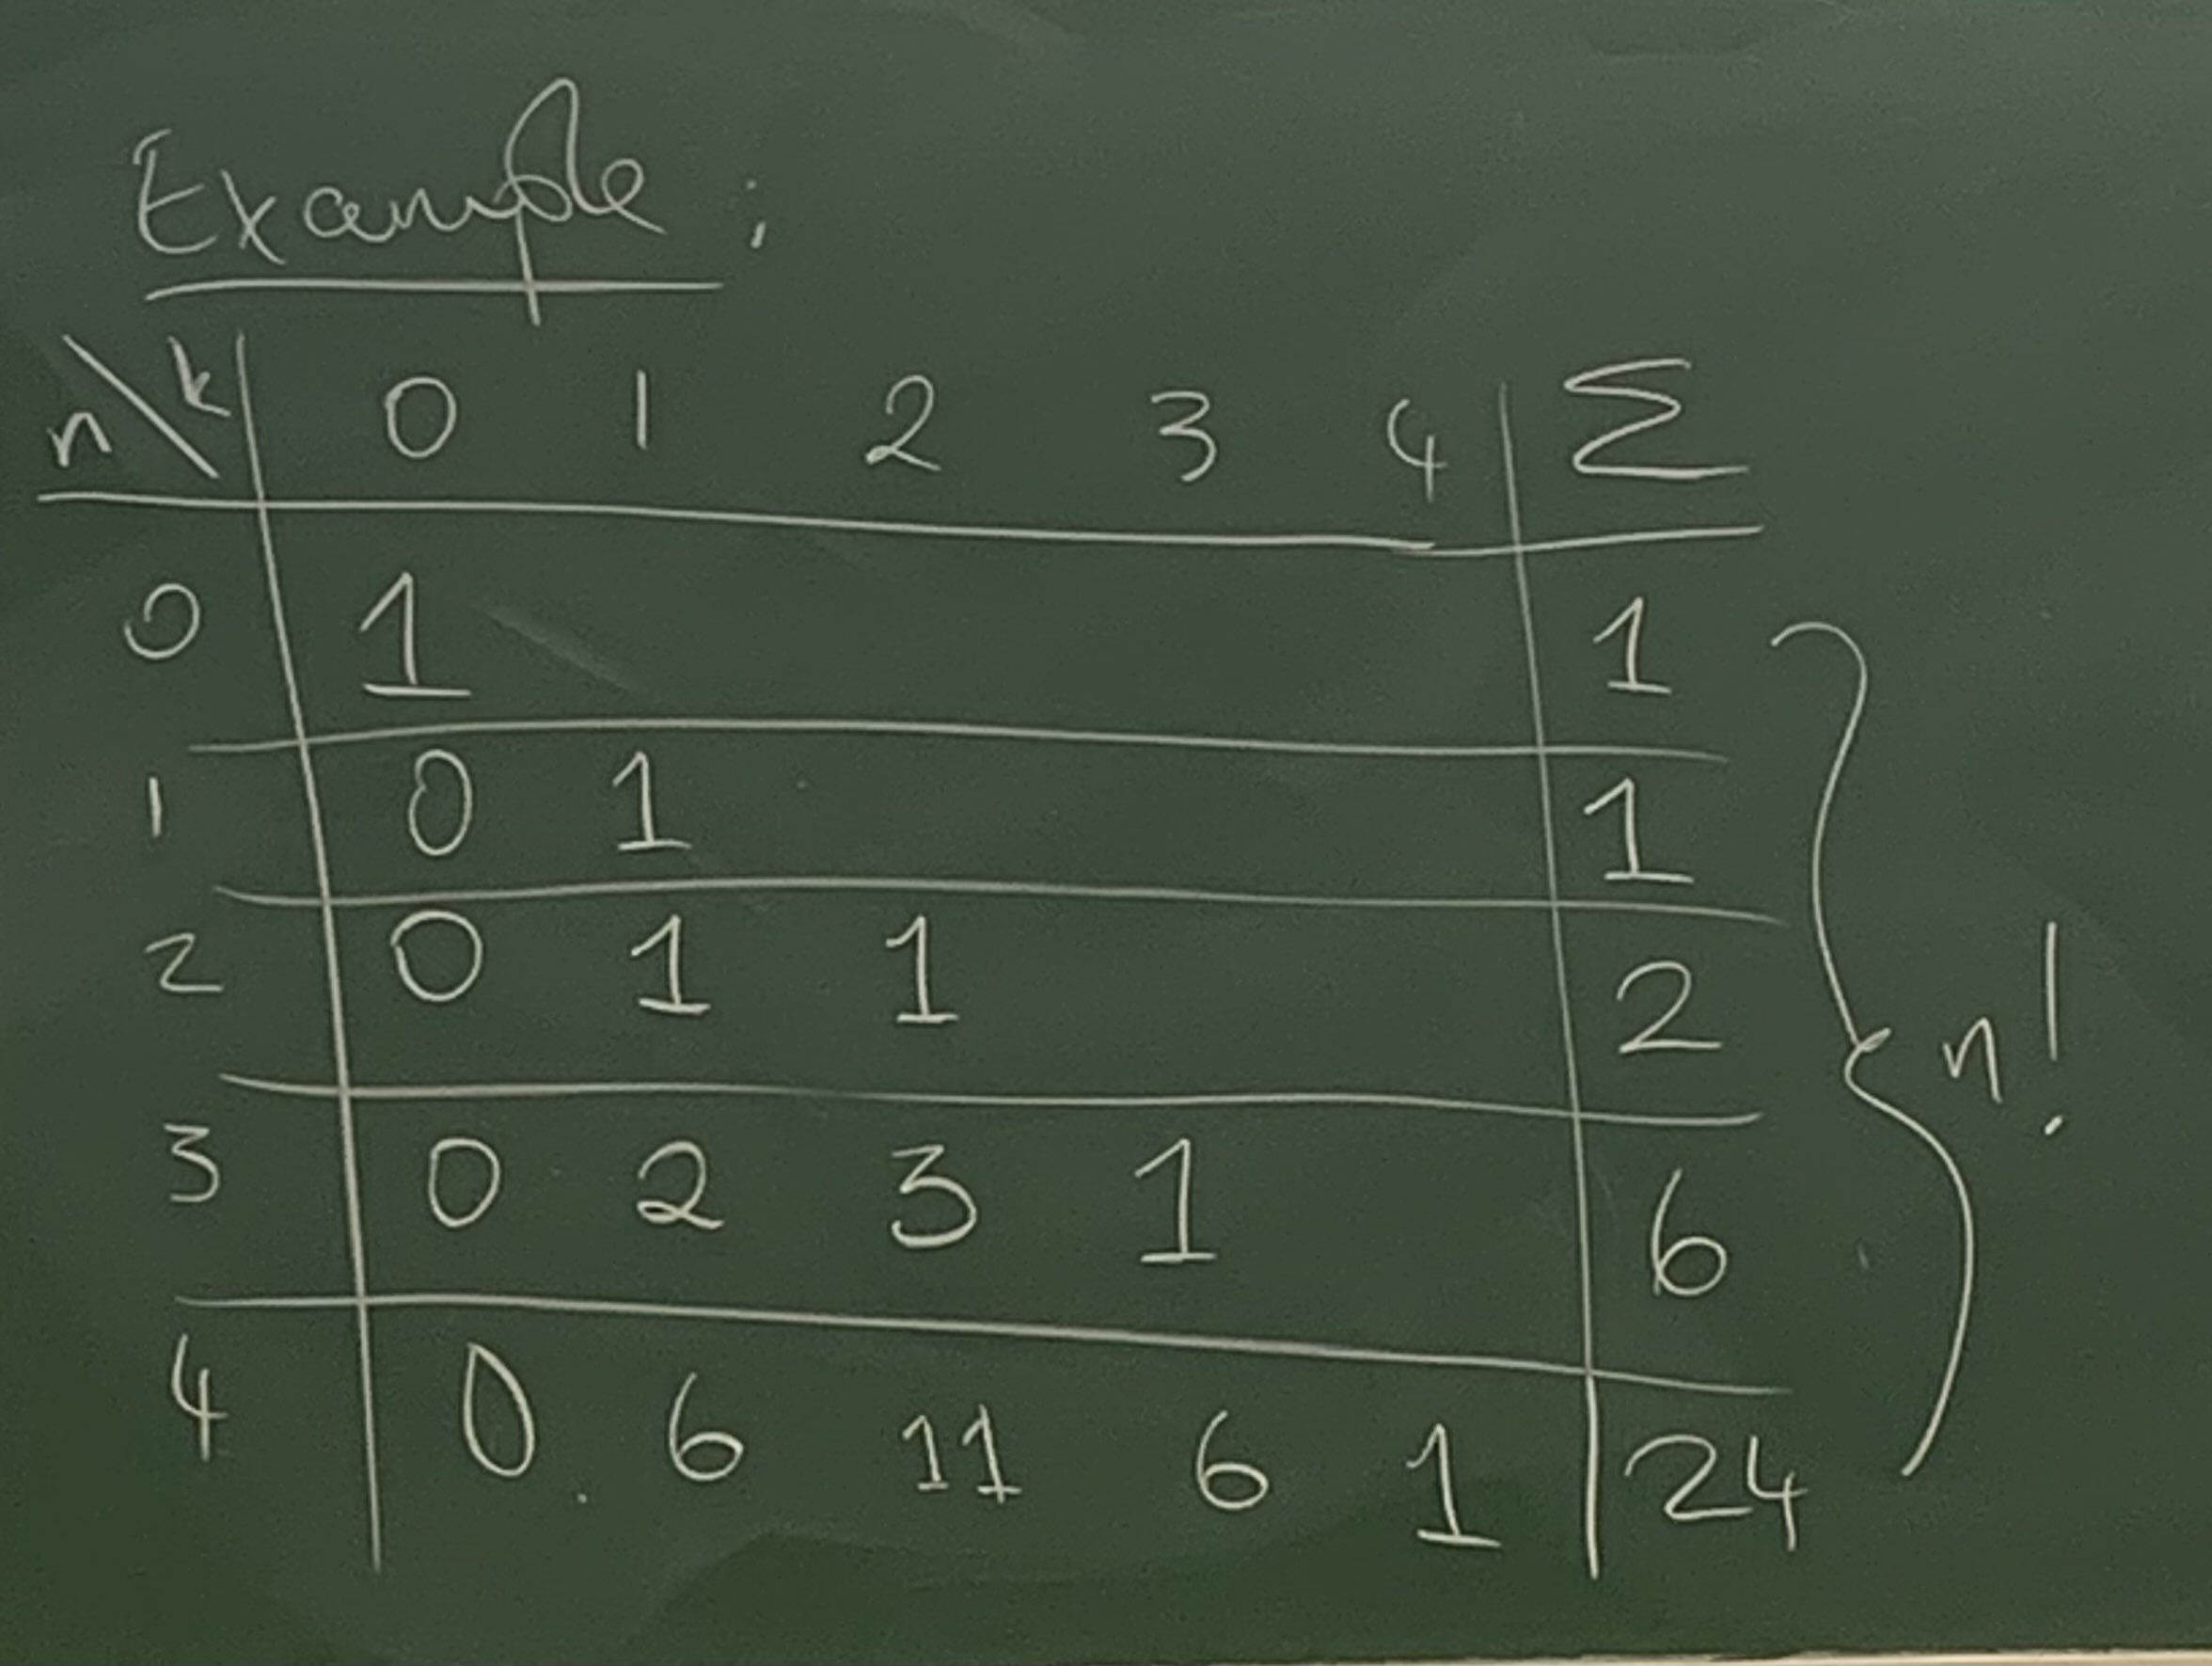 Example:
n\k 0 1 2 3 4 Σ
0 1 1
1 0 1 1
2 0 1 1 2
3 0 2 3 1 6
4 0 6 11 6 1 24
n!